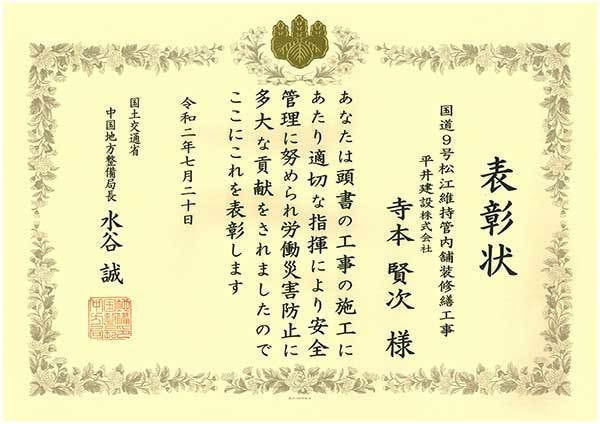 表彰状
国道９号松江維持管内舗装修繕工事
平井建設株式会社
寺本賢次様
あなたは頭書の工事の施工に
あたり適切な指揮により安全
管理に努められ労働災害防止に
多大な貢献をされましたので
ここにこれを表彰します
令和二年七月二十日
国土交通省
中国地方整備局長 水谷誠